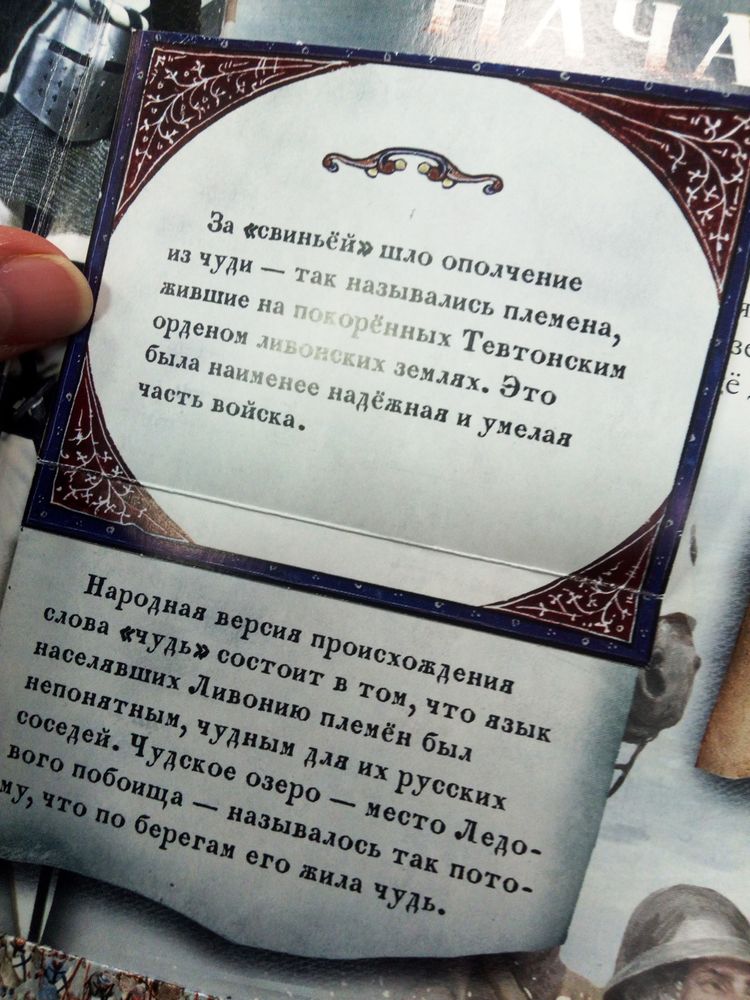 НАЧА
За «свиньёй» шло ополчение
из чуди — так назывались племена,
жившие на покорённых Тевтонским
орденом ливонских землях. Это
была наименее надёжная и умелая
часть войска.
Народная версия происхождения
слова «чудь» состоит в том, что язык
населявших Ливонию племён был
непонятным, чудным для их русских
соседей. Чудское озеро — место Ледо-
вого побоища — называлось так пото-
му, что по берегам его жила чудь.